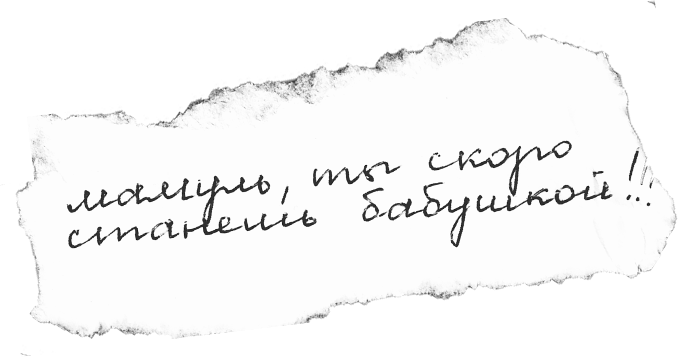 мамуль, ты скоро
станешь бабушкой!!!